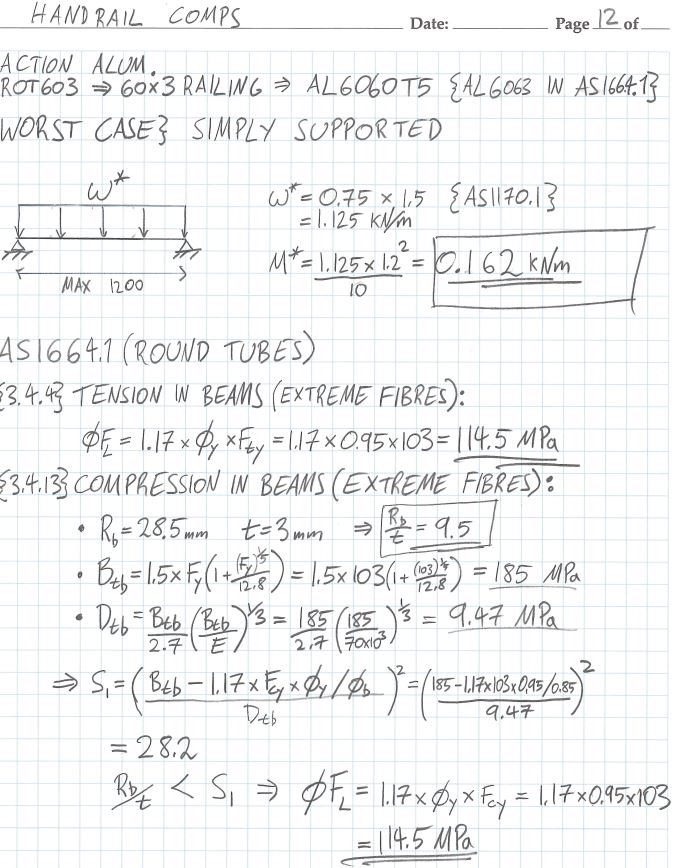 HANDRAIL COMPS Date: Page 12 of
ACTION ALUM.
ROT603 ⇒ 60x3 RAILING ⇒ AL6060T5 {AL6063 IN AS1664.1}
WORST CASE} SIMPLY SUPPORTED
W*
MAX 1200
ω* = 0.75 × 1.5 {AS1170.1}
= 1.125 kN/m
M* = 1.125 × 1.2² / 10 = 0.162 kNm
AS1664.1 (ROUND TUBES)
{3.4.4} TENSION IN BEAMS (EXTREME FIBRES):
ϕF_L = 1.17 × ϕ_y × F_ty = 1.17 × 0.95 × 103 = 114.5 MPa
{3.4.13} COMPRESSION IN BEAMS (EXTREME FIBRES):
• R_b = 28.5mm t = 3mm ⇒ R_b/t = 9.5
• B_tb = 1.5 × F_y (1 + (F_y)^1/5 / 12.8) = 1.5 × 103 (1 + (103)^1/5 / 12.8) = 185 MPa
• D_tb = B_tb/2.7 (B_tb/E)^1/3 = 185/2.7 (185/70x10³)^1/3 = 9.47 MPa
⇒ S₁ = (B_tb − 1.17 × F_cy × ϕ_y/ϕ_b / D_tb)² = (185 − 1.17x103x0.95/0.85 / 9.47)²
= 28.2
R_b/t < S₁ ⇒ ϕF_L = 1.17 × ϕ_y × F_cy = 1.17 × 0.95 × 103
= 114.5 MPa